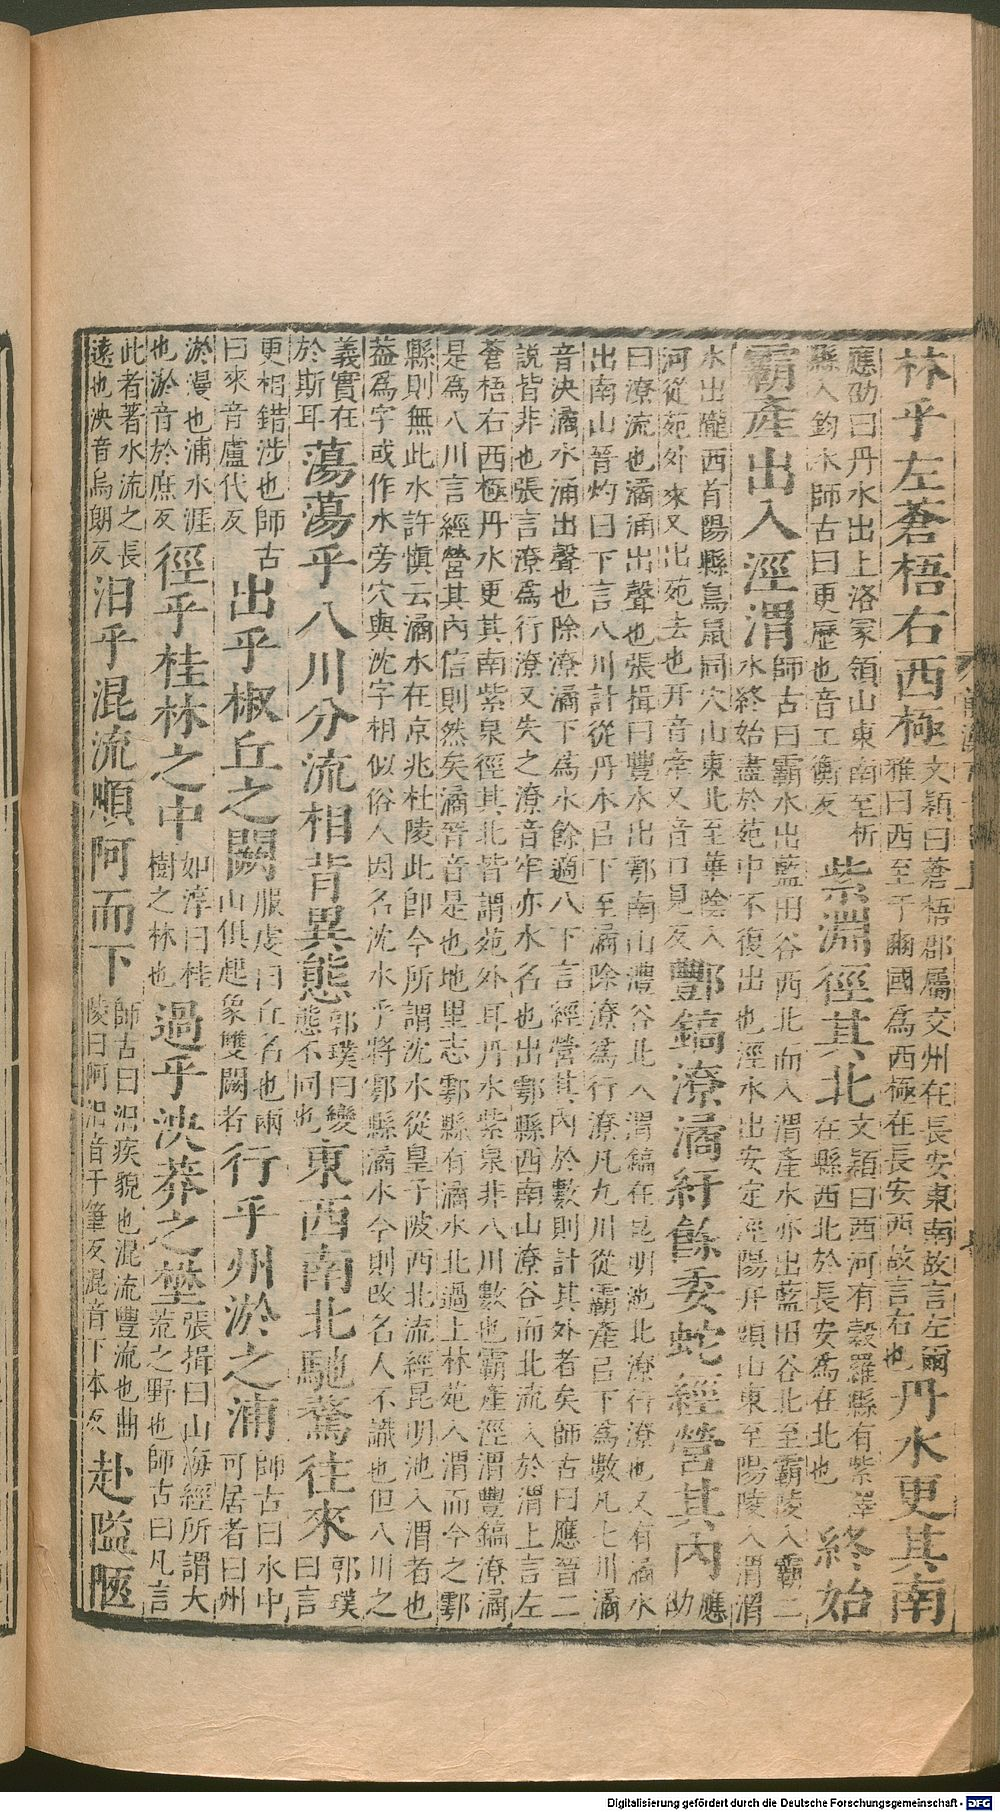 林乎左蒼梧右西極
文穎曰蒼梧郡屬交州在長安東南故言左爾
雅曰西至于豳國爲西極在長安西故言右也
丹水更其南
應劭曰丹水出上洛冢領山東南至析
縣入鈞水師古曰更歷也音工衡反
紫淵徑其北
文穎曰西河有穀羅縣有紫澤
在縣西北於長安爲在北也
終始
霸產出入涇渭
師古曰霸水出藍田谷西北而入渭產水亦出藍田谷北至霸陵入霸二
水終始盡於苑中不復出也涇水出安定涇陽幵頭山東至陽陵入渭渭
水出隴西首陽縣鳥鼠同穴山東北至華陰入
河從苑外來又出苑去也幵音牽又音口見反
酆鎬潦潏紆餘委蛇經營其內
應
劭
曰潦流也潏涌出聲也張揖曰豐水出鄠南山灃谷北入渭鎬在昆明池北潦行潦也又有潏水
出南山晉灼曰下言八川計從丹水㠯下至潏除潦爲行潦凡九川從霸產㠯下爲數凡七川潏
音決潏水涌出聲也除潦潏下爲水餘適八下言經營其內於數則計其外者矣師古曰應晉二
說皆非也張言潦爲行潦又失之潦音牢亦水名也出鄠縣西南山潦谷而北流入於渭上言左
蒼梧右西極丹水更其南紫泉徑其北皆謂苑外耳丹水紫泉非八川數也霸產涇渭豐鎬潦潏
是爲八川言經營其內信則然矣潏晉音是也地里志鄠縣有潏水北過上林苑入渭而今之鄠
縣則無此水許愼云潏水在京兆杜陵此卽今所謂沈水從皇子陂西北流經昆明池入渭者也
益爲字或作水旁穴與沈字相似俗人因名沈水乎將鄠縣潏水今則改名人不識也但八川之
義實在
於斯耳
蕩蕩乎八川分流相背異態
郭璞曰變
態不同也
東西南北馳騖往來
郭璞
曰言
更相錯涉也師古
曰來音盧代反
出乎椒丘之闕
服虔曰丘名也兩
山俱起象雙闕者
行乎州淤之浦
師古曰水中
可居者曰州
淤漫也浦水涯
也淤音於庶反
徑乎桂林之中
如淳曰桂
樹之林也
過乎泱莽之壄
張揖曰山海經所謂大
荒之野也師古曰凡言
此者著水流之長
遠也泱音烏朗反
汨乎混流順阿而下
師古曰汨疾貌也混流豐流也曲
陵曰阿汨音于筆反混音下本反
赴隘陿
Digitalisierung gefördert durch die Deutsche Forschungsgemeinschaft - DFG